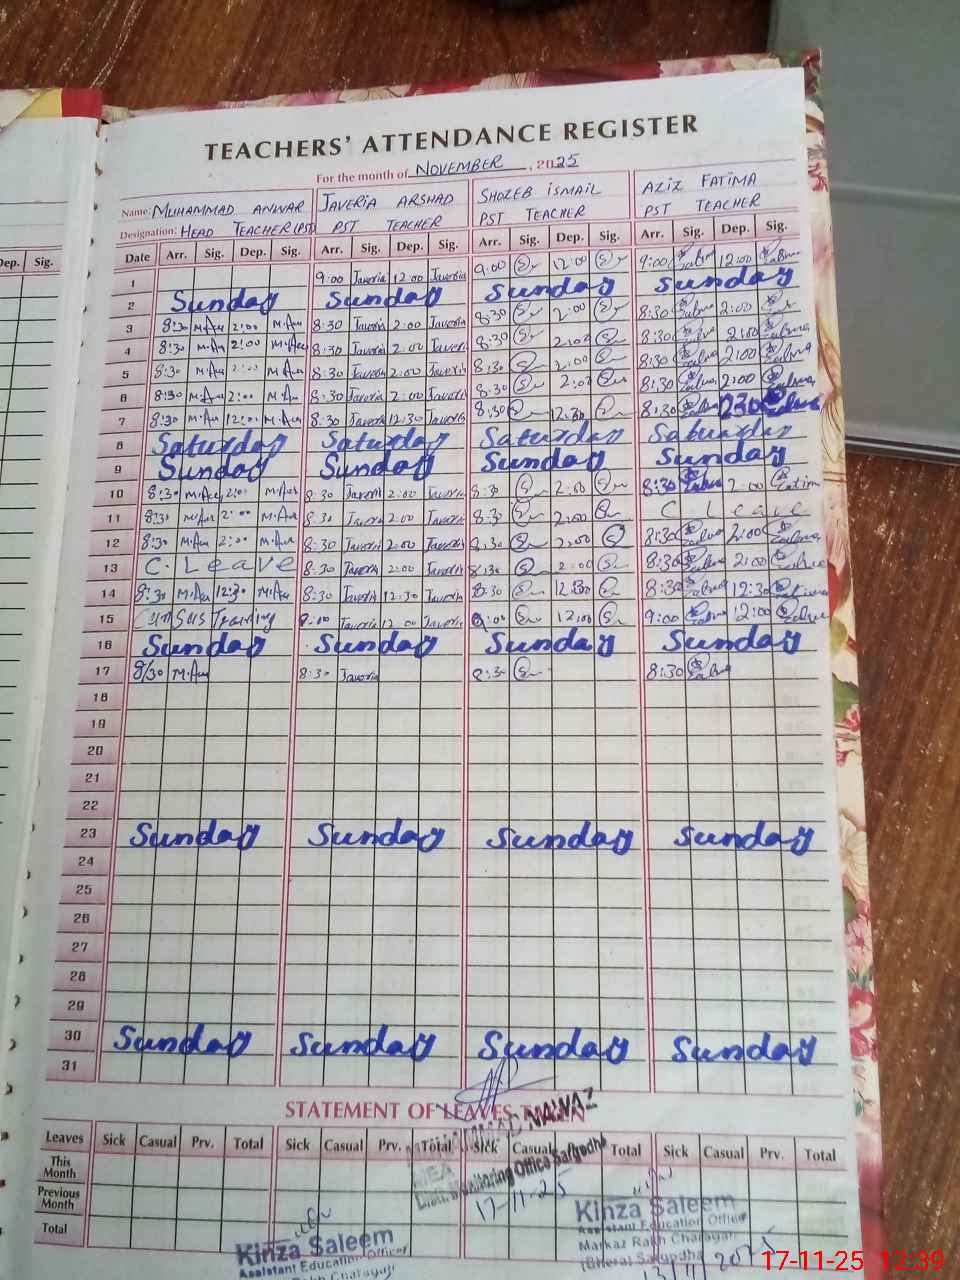 TEACHERS' ATTENDANCE REGISTER
For the month of NOVEMBER, 2025
Name: MUHAMMAD ANWAR JAVERIA ARSHAD SHOZEB ISMAIL AZIZ FATIMA
Designation: HEAD TEACHER (PST) PST TEACHER PST TEACHER PST TEACHER
Dep. Sig. Date Arr. Sig. Dep. Sig. Arr. Sig. Dep. Sig. Arr. Sig. Dep. Sig. Arr. Sig. Dep. Sig.
1 9:00 Javeria 12:00 Javeria 9:00 12:00 9:00 12:00
2 Sunday Sunday Sunday Sunday
3 8:30 M.Au 2:00 M.Au 8:30 Javeria 2:00 Javeria 8:30 2:00 8:30 2:00
4 8:30 M.Au 2:00 M.Au 8:30 Javeria 2:00 Javeria 8:30 2:00 8:30 2:00
5 8:30 M.Au 2:00 M.Au 8:30 Javeria 2:00 Javeria 8:30 2:00 8:30 2:00
6 8:30 M.Au 2:00 M.Au 8:30 Javeria 2:00 Javeria 8:30 2:00 8:30 2:00
7 8:30 M.Au M.Au 8:30 Javeria 12:30 Javeria 8:30 12:30 8:30
8 Saturday Saturday Saturday Saturday
9 Sunday Sunday Sunday Sunday
10 8:30 M.Au 2:00 M.Au 8:30 Javeria 2:00 Javeria 8:30 2:00 8:30 2:00
11 8:30 M.Au 2:00 M.Au 8:30 Javeria 2:00 Javeria 8:30 2:00 C. Leave
12 8:30 M.Au 2:00 M.Au 8:30 Javeria 2:00 Javeria 8:30 2:00 8:30 2:00
13 C. Leave 8:30 Javeria 2:00 Javeria 8:30 2:00 8:30 2:00
14 8:30 M.Au 12:30 M.Au 8:30 Javeria 12:30 Javeria 8:30 12:30 8:30 12:30
15 Javeria 12:00 Javeria 9:00 12:00 9:00 12:00
16 Sunday Sunday Sunday Sunday
17 8:30 M.Au 8:30 Javeria 8:30 8:30
18
19
20
21
22
23 Sunday Sunday Sunday Sunday
24
25
26
27
28
29
30 Sunday Sunday Sunday Sunday
31
STATEMENT OF LEAVES TAKEN
NAWAZ
Leaves Sick Casual Prv. Total Sick Casual Prv. Total Sick Casual Total Sick Casual Prv. Total
MEA
Distt. Monitoring Office Sargodha
17-11-25
This Month
Previous Month
Total
Kinza Saleem
Assistant Education Officer
Markaz Rakh Charagah
(Bhera) Sargodha
13/11/2025
Kinza Saleem
Assistant Education Officer
Rakh Charagah
17-11-25 12:39